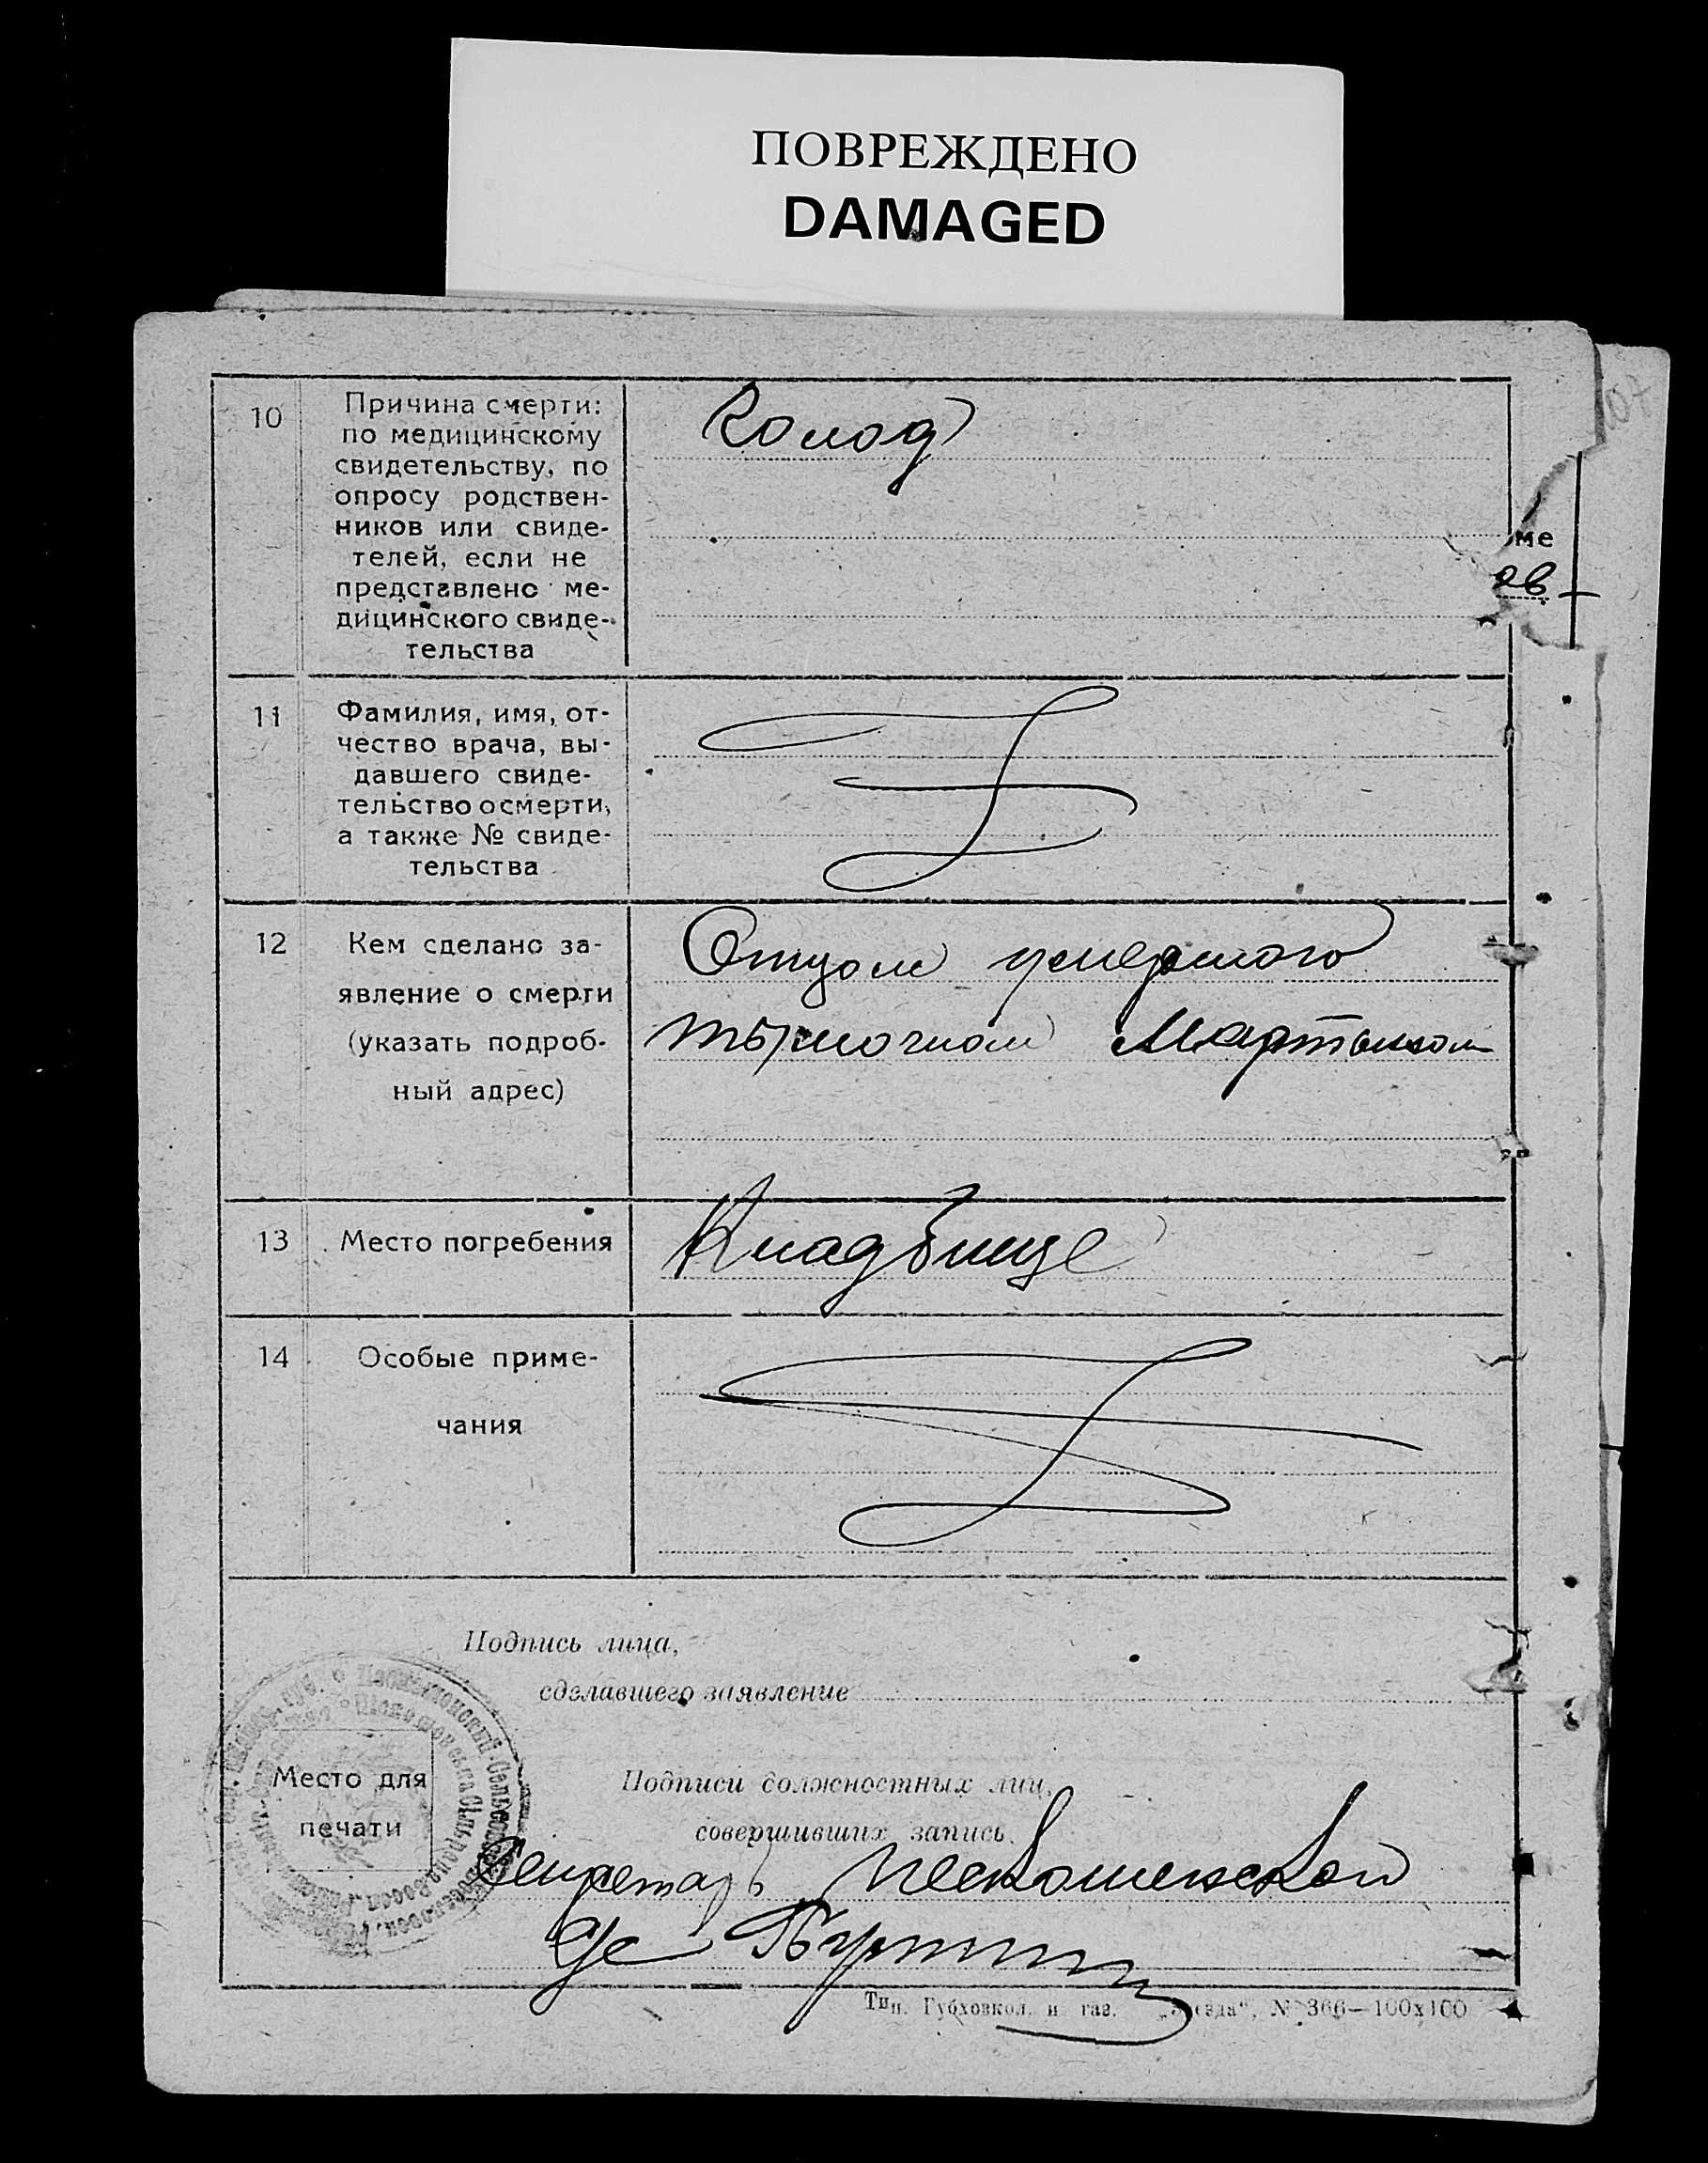 ПОВРЕЖДЕНО
DAMAGED
10
Причина смерти:
по медицинскому
свидетельству, по
опросу родствен-
ников или свиде-
телей, если не
представлено ме-
дицинского свиде-
тельства
Колод
ме
ов
11
Фамилия, имя, от-
чество врача, вы-
давшего свиде-
тельство о смерти,
а также № свиде-
тельства
12
Кем сделано за-
явление о смерти
(указать подроб-
ный адрес)
Отцом умершого
Мартыном
13
Место погребения
Кладбище
14
Особые приме-
чания
Подпись лица,
сделавшего заявление
Место для
печати
Подписи должностных лиц,
совершивших запись.
Секретарь
Тип. Губховкол. и газ. „Звезда“, № 366—100х100